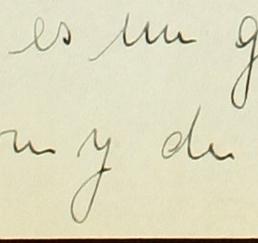 es un g
n y du